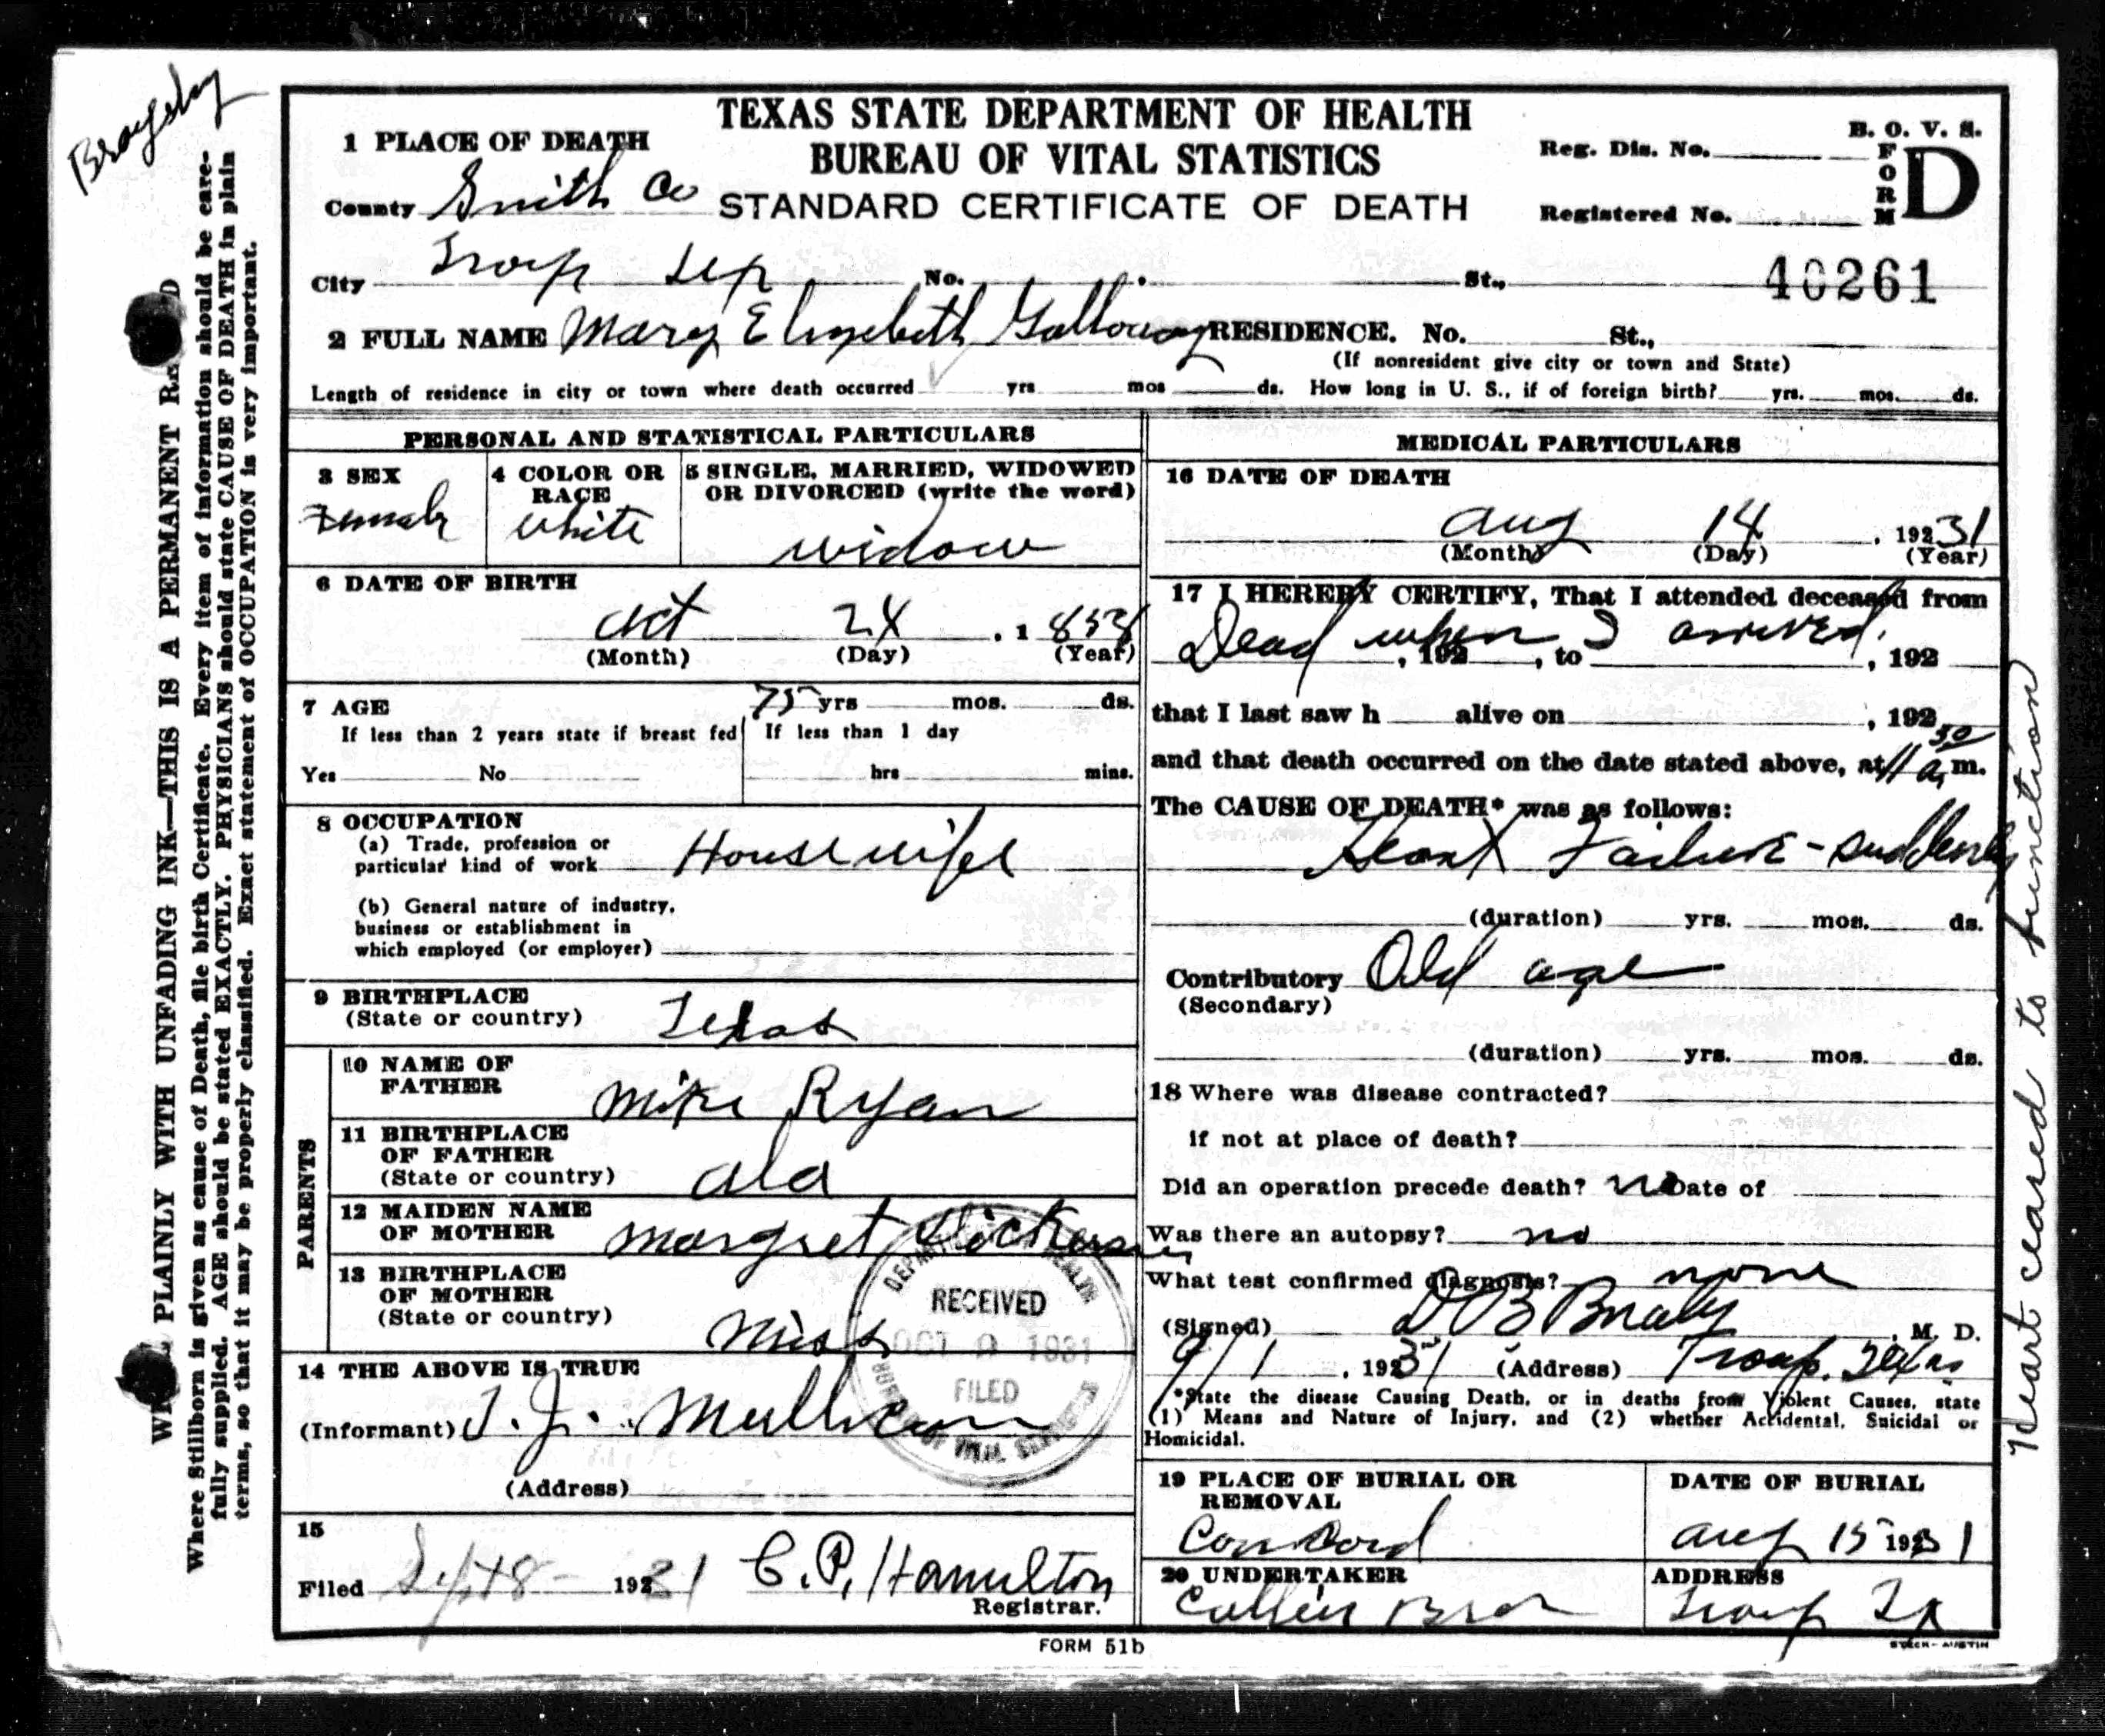 TEXAS STATE DEPARTMENT OF HEALTH
BUREAU OF VITAL STATISTICS
STANDARD CERTIFICATE OF DEATH
B. O. V. S.
FORM D
Reg. Dis. No.
Registered No.
40261
1 PLACE OF DEATH
County Smith Co
City Troup No. St.,
2 FULL NAME Mary Elizabeth Galloway RESIDENCE. No. St.,
(If nonresident give city or town and State)
Length of residence in city or town where death occurred yrs mos ds. How long in U. S., if of foreign birth? yrs. mos. ds.
PERSONAL AND STATISTICAL PARTICULARS
3 SEX
Female
4 COLOR OR RACE
white
5 SINGLE, MARRIED, WIDOWED
OR DIVORCED (write the word)
widow
6 DATE OF BIRTH
Oct 24 , 1
(Month) (Day) (Year)
7 AGE 75 yrs mos. ds.
If less than 2 years state if breast fed
Yes No
If less than 1 day
hrs mins.
8 OCCUPATION
(a) Trade, profession or
particular kind of work Housewife
(b) General nature of industry,
business or establishment in
which employed (or employer)
9 BIRTHPLACE
(State or country) Texas
PARENTS
10 NAME OF
FATHER Mike Ryan
11 BIRTHPLACE
OF FATHER
(State or country) Ala
12 MAIDEN NAME
OF MOTHER Margret
13 BIRTHPLACE
OF MOTHER
(State or country) Miss
14 THE ABOVE IS TRUE
(Informant) J. J.
(Address)
15
Filed Sept 8 - 1931 C. P. Hamilton
Registrar.
RECEIVED
OCT 1931
FILED
MEDICAL PARTICULARS
16 DATE OF DEATH
Aug 14 , 19231
(Month) (Day) (Year)
17 I HEREBY CERTIFY, That I attended deceased from
Dead when I arrived.
, 192 , to , 192
that I last saw h alive on , 192
and that death occurred on the date stated above, at 11 30 a m.
The CAUSE OF DEATH* was as follows:
Heart Failure - suddenly
(duration) yrs. mos. ds.
Contributory Old age
(Secondary)
(duration) yrs. mos. ds.
18 Where was disease contracted?
if not at place of death?
Did an operation precede death? no Date of
Was there an autopsy? no
What test confirmed diagnosis? none
(Signed) D B Braly , M. D.
9/1 , 1931 (Address) Troup, Texas
*State the disease Causing Death, or in deaths from Violent Causes, state
(1) Means and Nature of Injury, and (2) whether Accidental, Suicidal or
Homicidal.
19 PLACE OF BURIAL OR
REMOVAL
Concord
DATE OF BURIAL
Aug 15 1931
20 UNDERTAKER
Bros
ADDRESS
Troup Tx
FORM 51b
STECK-AUSTIN
Heart ceased to function
PLAINLY WITH UNFADING INK—THIS IS A PERMANENT
Where Stillborn is given as cause of Death, file birth Certificate. Every item of information should be care-
fully supplied. AGE should be stated EXACTLY. PHYSICIANS should state CAUSE OF DEATH in plain
terms, so that it may be properly classified. Exact statement of OCCUPATION is very important.